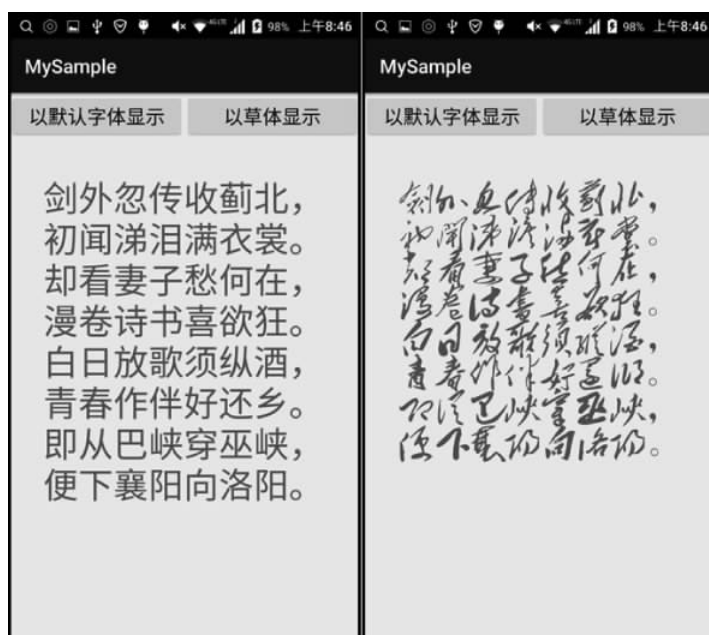 98% 上午8:46
MySample
以默认字体显示 以草体显示
剑外忽传收蓟北，
初闻涕泪满衣裳。
却看妻子愁何在，
漫卷诗书喜欲狂。
白日放歌须纵酒，
青春作伴好还乡。
即从巴峡穿巫峡，
便下襄阳向洛阳。
98% 上午8:46
MySample
以默认字体显示 以草体显示
剑外忽传收蓟北，
初闻涕泪满衣裳。
却看妻子愁何在，
漫卷诗书喜欲狂。
白日放歌须纵酒，
青春作伴好还乡。
即从巴峡穿巫峡，
便下襄阳向洛阳。